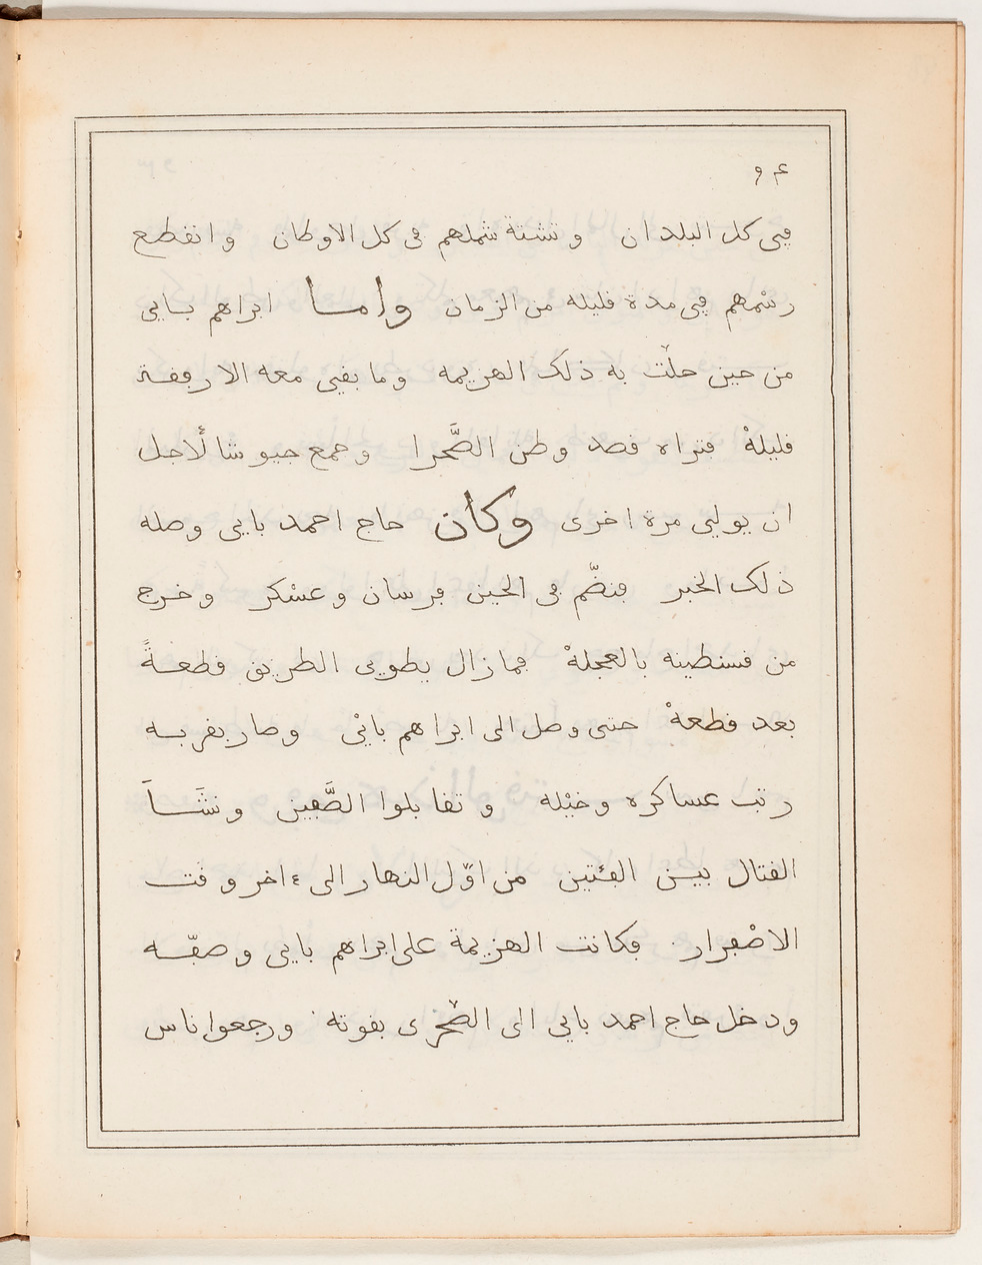 ٩٤
في كل البلدان وتشتة شملهم في كل الاوطان وانقطع
رسْمهم في مدة قليله من الزمان واما ابراهم بايي
من حين حلّت به ذلك الهزيمه وما بقي معه الا رفقة
قليلهْ فتراه قصد وطن الصَّحرا وجمع جيوشا لأجل
ان يولي مرة اخرى وكان حاج احمد بايي وصله
ذلك الخبر فنضّم في الحين فرسان وعسْكر وخرج
من قسنطينه بالعجلةْ فما زال يطوي الطريق قطعةً
بعد قطعةْ حتى وصل الى ابراهم بايْ وصار بقربه
رتب عساكره وخيْله وتقابلوا الصَّفين ونشَاَ
القتال بين الفئتين من اوّل النهار الى ءاخر وقت
الاصْفرار فكانت الهزيمة على ابراهم بايي وصفّه
ودخل حاج احمد بايي الى الصّحرى بقوته ورجعوا ناس